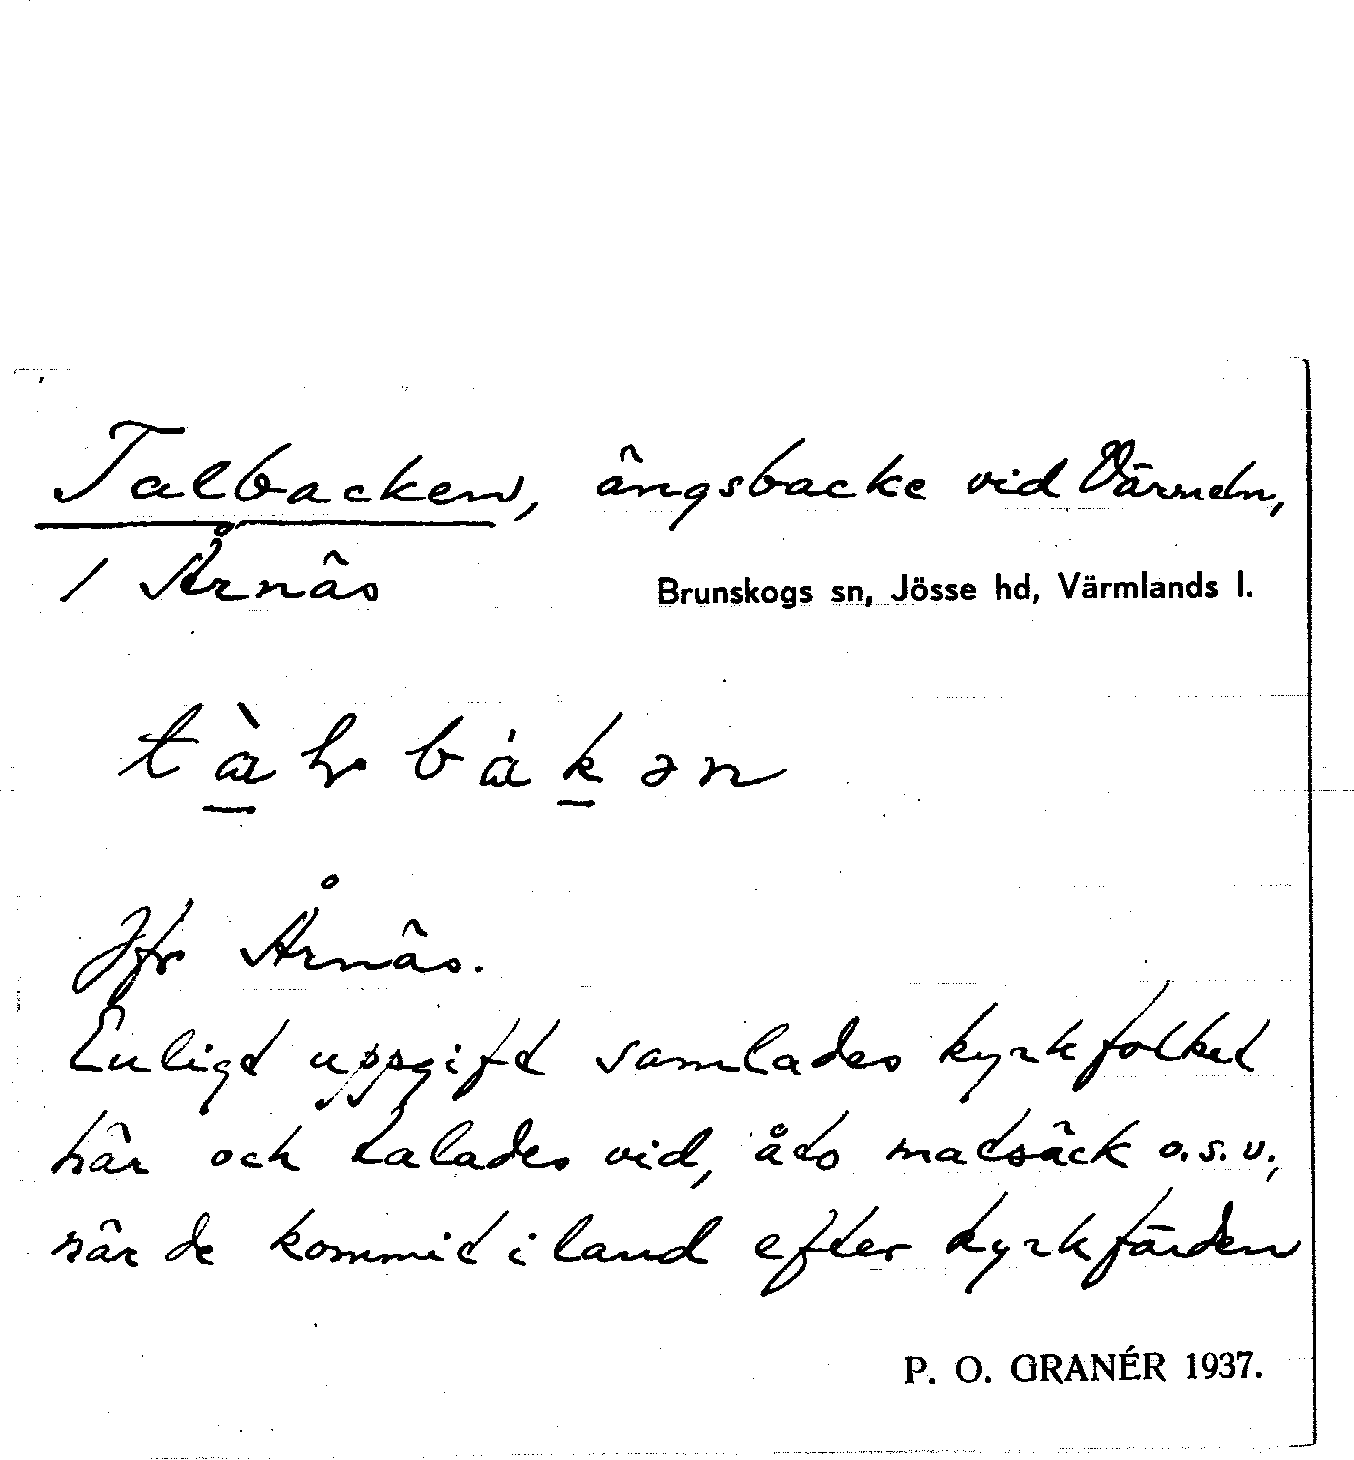 Talbacken, ängsbacke vid Värmeln,
/ Årnäs Brunskogs sn, Jösse hd, Värmlands l.
Jfr Årnäs.
Enligt uppgift samlades kyrkfolket
här och talades vid, åto matsäck o.s.v.,
när de kommit i land efter kyrkfärden
P. O. GRANÉR 1937.